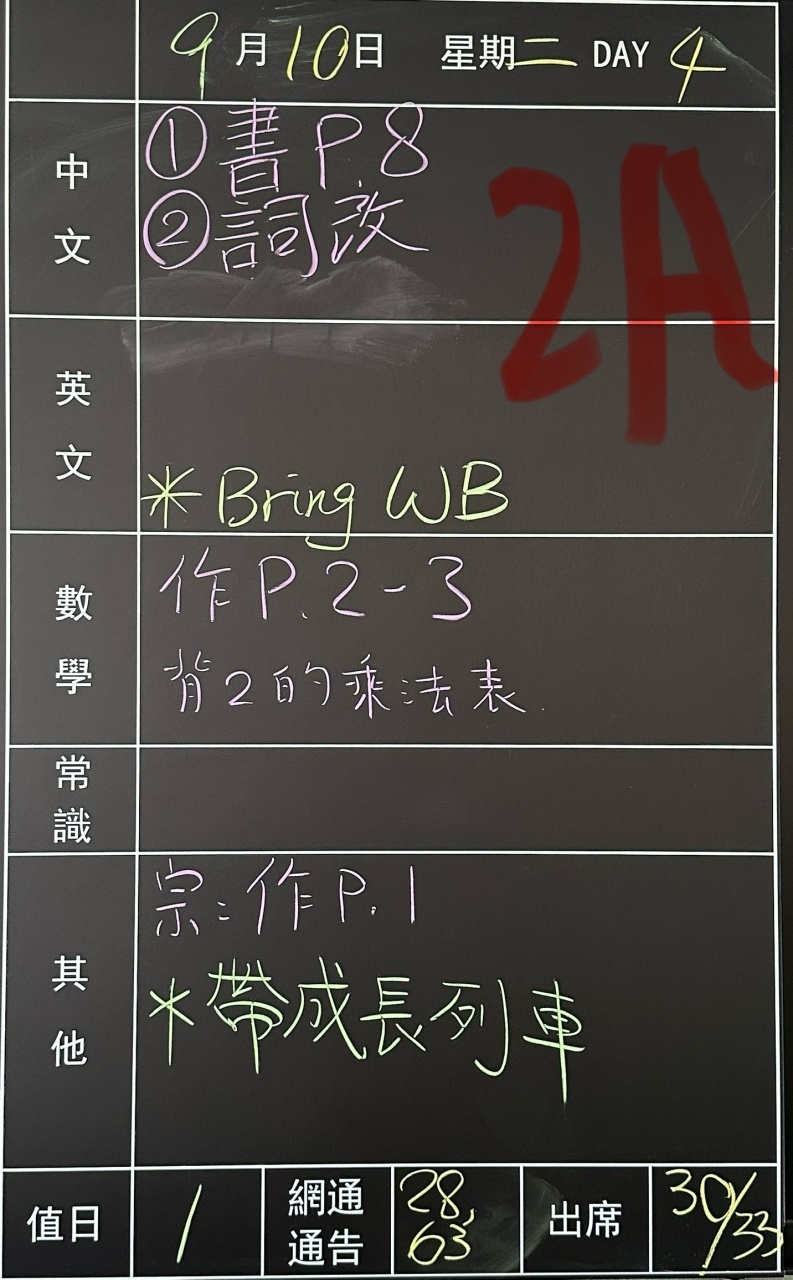 9月10日 星期二 DAY 4
2A
中文
①書 P.8
②詞改
英文
* Bring WB
數學
作 P.2-3
背2的乘法表
常識
其他
宗：作 P.1
*帶成長列車
值日 1 網通通告 28, 63 出席 30/33